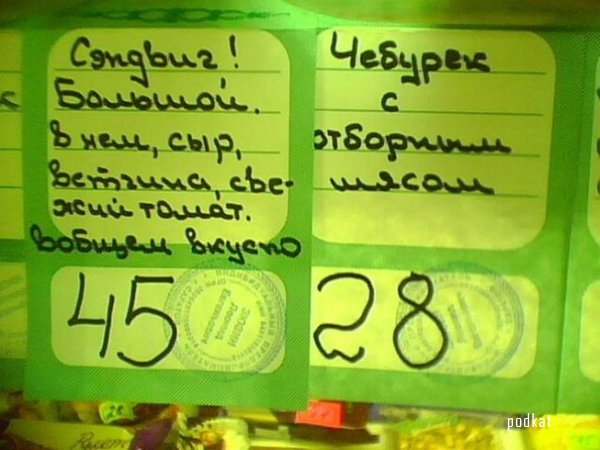 Сэндвиг!
Большой.
в нем, сыр,
ветчина, све-
жий томат.
вобщем вкусто
45
Чебурек
с
отборным
мясом
28
podkat